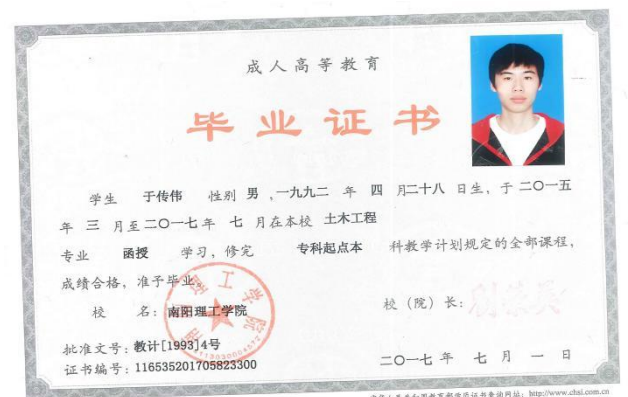 成人高等教育
毕业证书
学生 于传伟 性别 男 ,一九九二 年 四 月二十八 日生, 于 二〇一五
年 三 月至二〇一七年 七 月在本校 土木工程
专业 函授 学习, 修完 专科起点本 科教学计划规定的全部课程,
成绩合格, 准予毕业。
校 名: 南阳理工学院
校 (院) 长:
批准文号: 教计[1993]4号
证书编号: 116535201705823300
二〇一七 年 七 月 一 日
中华人民共和国教育部学历证书查询网址: http://www.chsi.com.cn